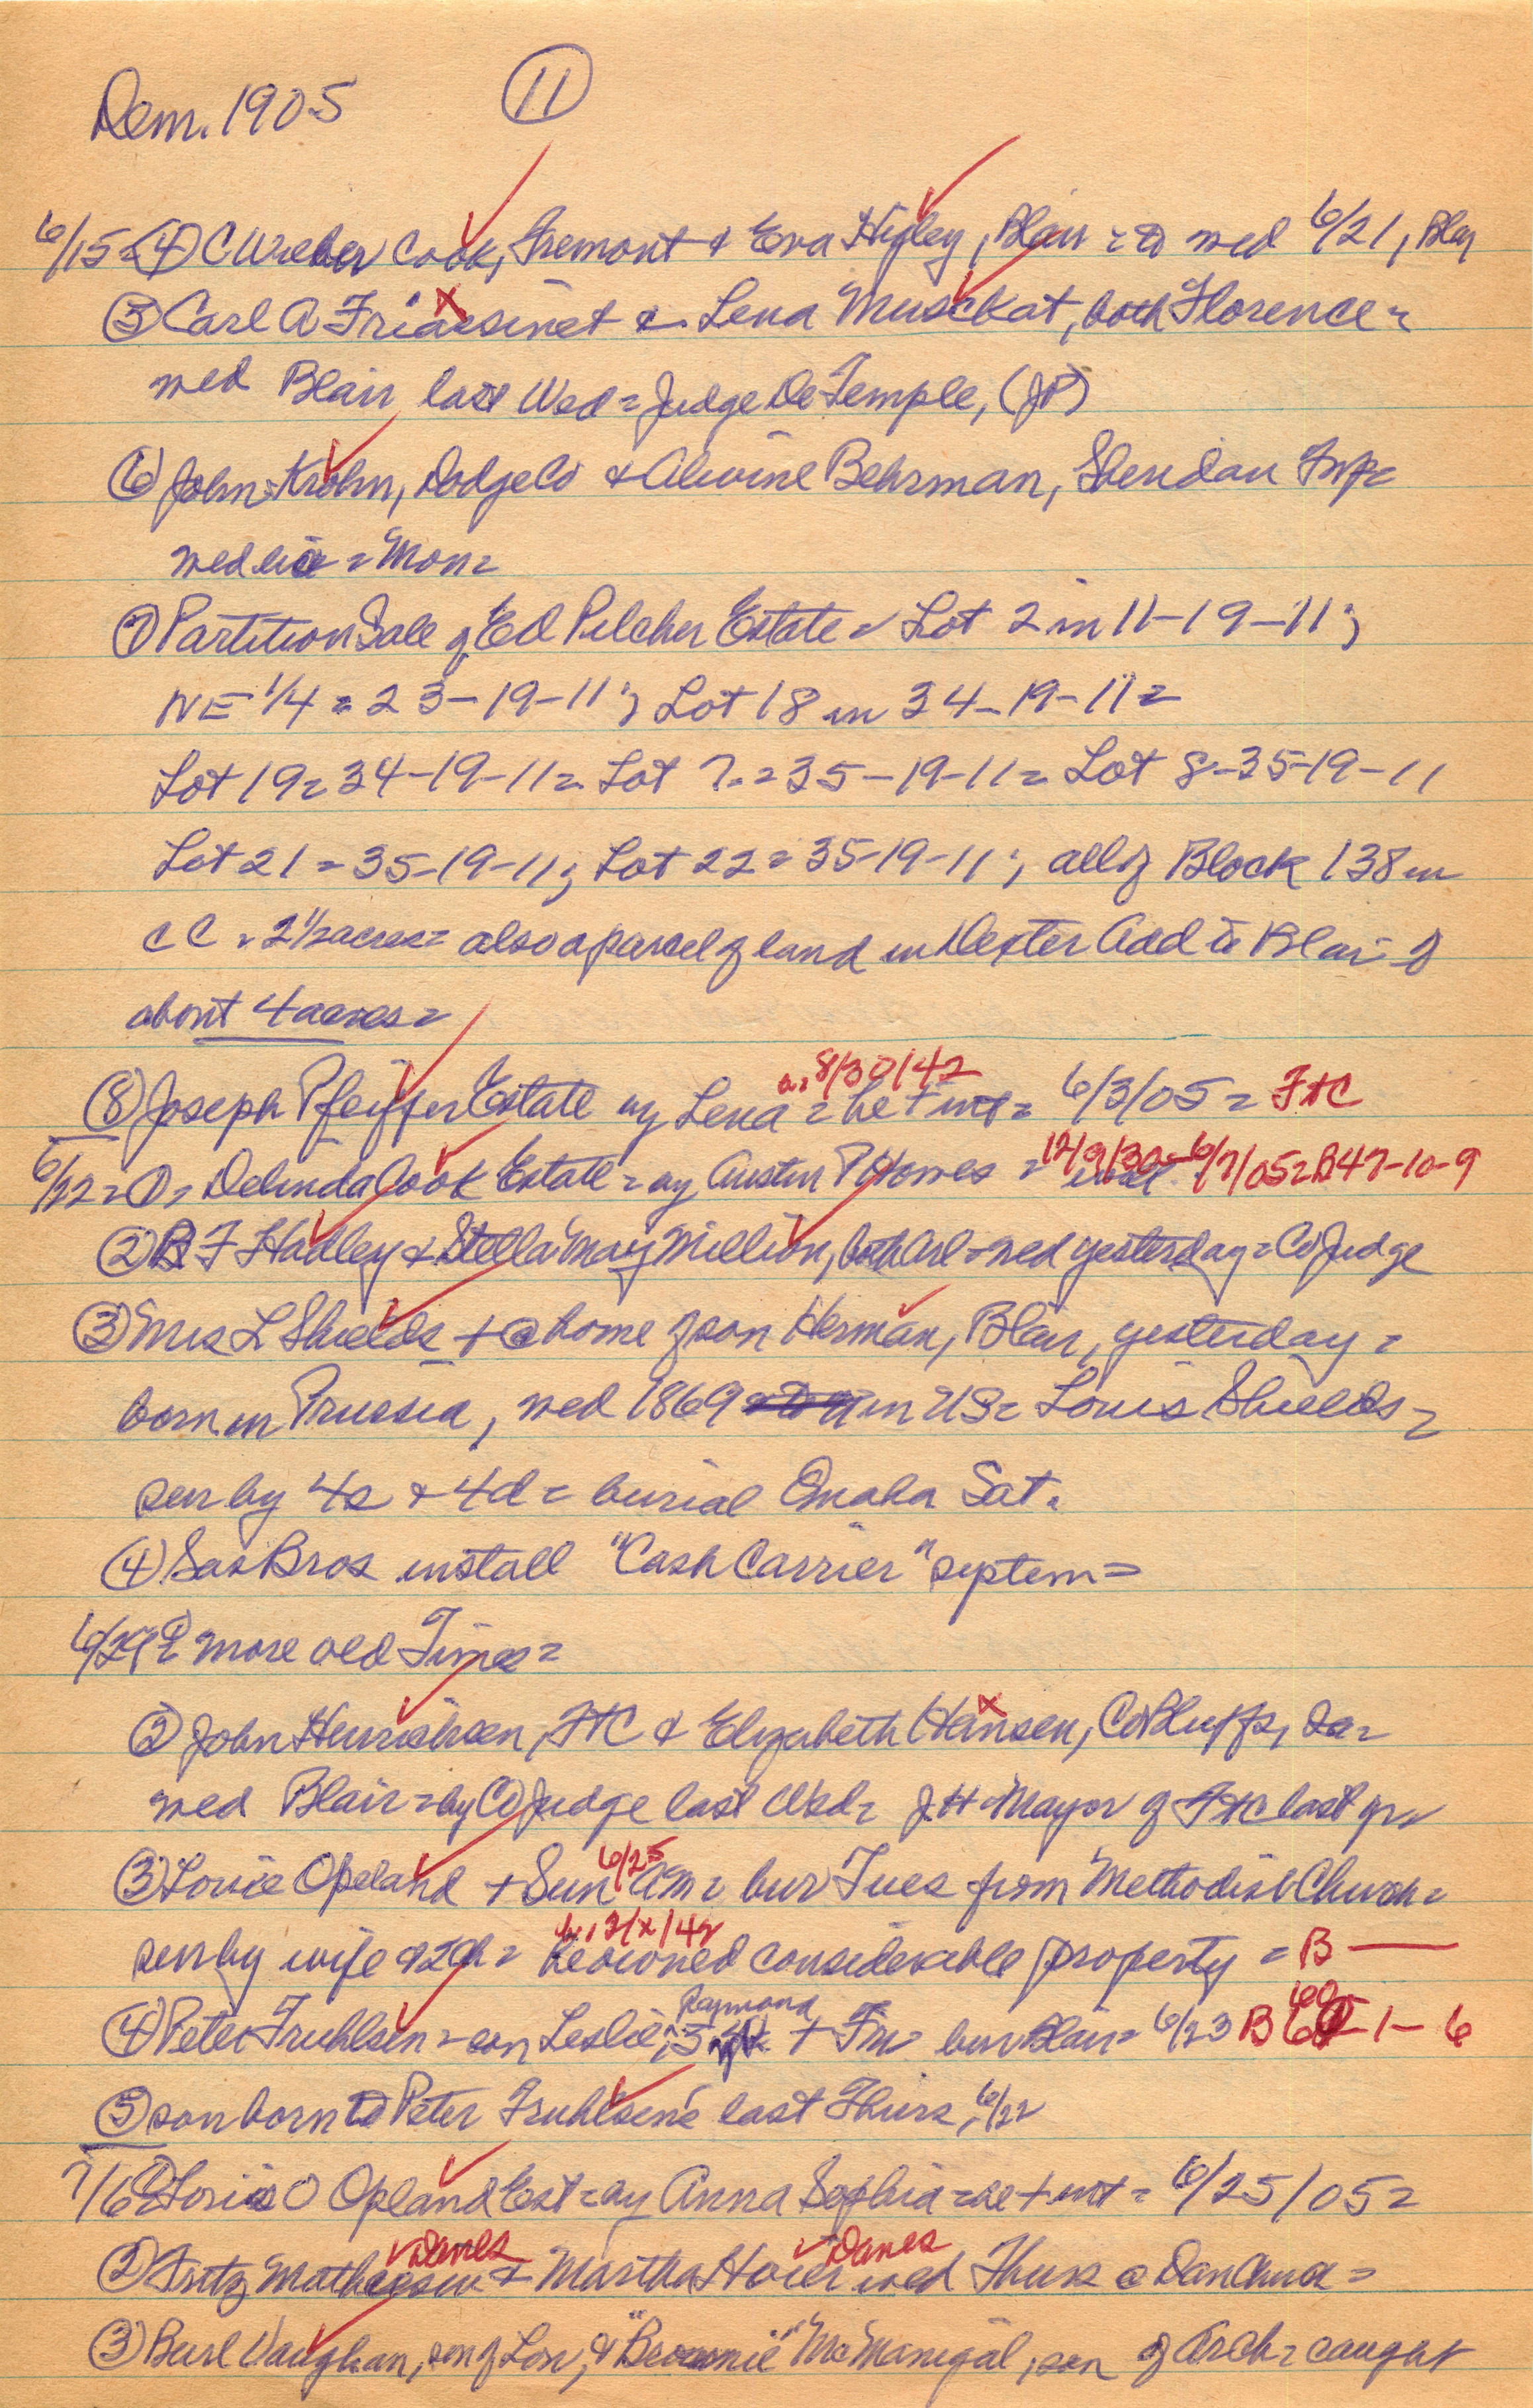 Dem. 1905 (11)
6/15 = (4) C Weber Cook, Fremont & Eva Higley, Blair = to wed 6/21, Blair
(5) Carl A Friaesinet & Lena Musckat, both Florence =
wed Blair last Wed = Judge De Temple, (JP)
(6) John Krohn, Dodge Co & Alvine Behrman, Sheridan Twp =
wed lic = Mon =
(7) Partition Sale of Ed Pilcher Estate = Lot 2 in 11-19-11;
NE 1/4 = 23-19-11; Lot 18 in 34-19-11 =
Lot 19 = 34-19-11 = Lot 7 = 35-19-11 = Lot 8-35-19-11
Lot 21 = 35-19-11; Lot 22 = 35-19-11; all of Block 138 in
CC = 2 1/2 acres = also a parcel of land in Dexter Add to Blair of
about 4 acres =
a. 8/30/42
(8) Joseph Pfeiffer Estate by Lena = he + int = 6/3/05 = FtC
6/22 = (1) = Delinda Cook Estate = by Austin P Homes = 12/9/30 - 6/7/05 = B47-10-9
(2) B F Hadley & Stella May Million, both Arl = wed yesterday = Co Judge
(3) Mrs L Shields + @ home of son Herman, Blair, yesterday =
born in Prussia, wed 1869 in US = Louis Shields =
sur by 4s & 4d = burial Omaha Sat.
(4) Sas Bros install "Cash Carrier" system =
6/29 = (1) more old Times =
(2) John Hinrichsen, FtC & Elizabeth Hansen, Co Bluffs, Ia =
wed Blair = by Co Judge last Wed = J.H. Mayor of FtC last yr =
(3) Lovie Opeland + Sun 6/25 AM = bur Tues from Methodist Church =
sur by wife & 2 ch = he owned considerable property = B —
(4) Peter Truhlsen = son Leslie Raymond, + Fri = bur Blair = 6/23 B 60-1-6
(5) son born to Peter Truhlsen's last Thurs, 6/22
7/6 = (1) Loris O Opland Est = by Anna Sophia = he + int = 6/25/05 =
Danes Danes
(2) Fritz Mathiesen & Martha Hover wed Thurs @ Dan Church =
(3) Burl Vaughan, son of Lon, & "Brownie" McManigal, son of Arch = caught